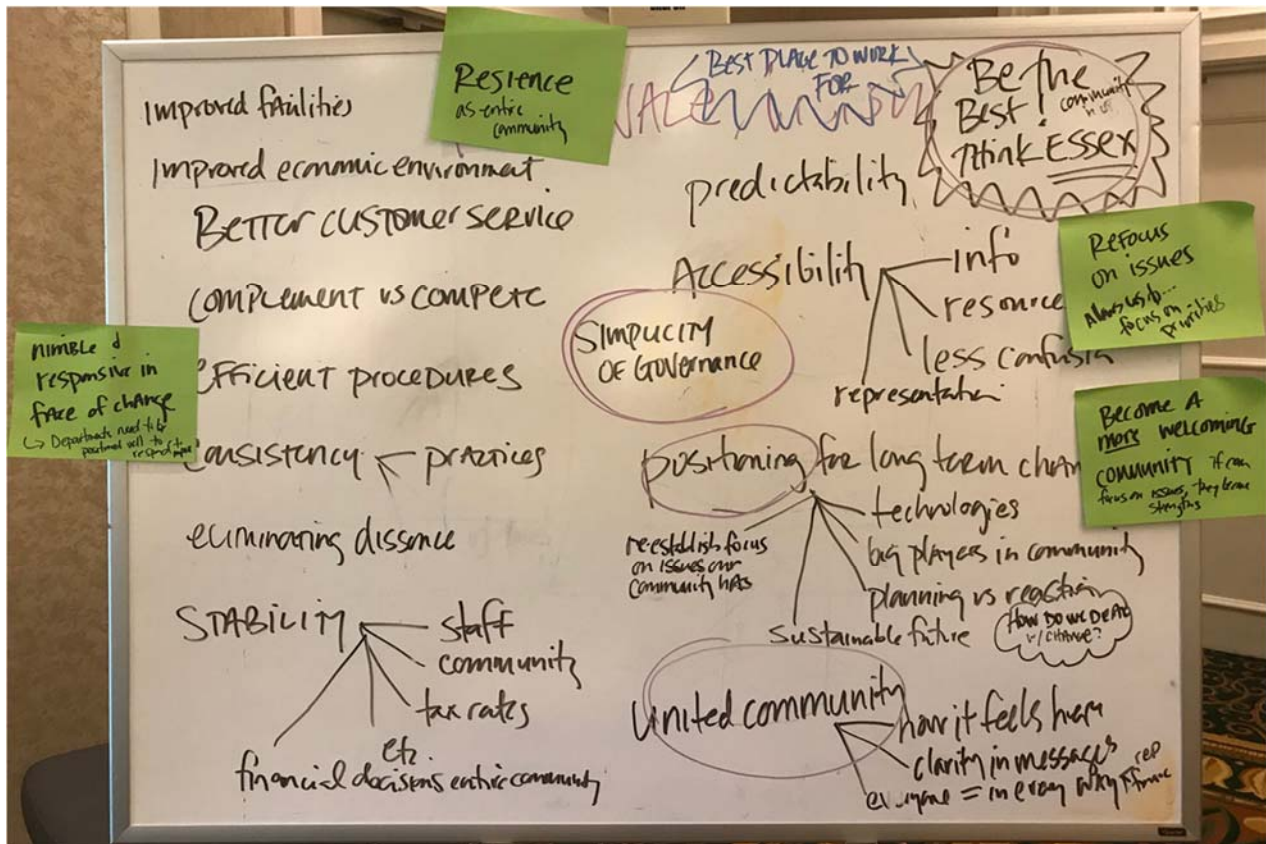 Improved failities
Improved economic environment.
Better customer service
complement vs compete
efficient procedures
consistency practices
eliminating dissence
STABILITY
staff
community
tax rates
etc.
financial decisions entire community
Resience
as entire
community
nimble &
responsive in
face of change
Departments need to be
positioned well to
respond
BEST PLACE TO WORK
FOR
Be the
Best!
community
Think ESSEX
predictability
Accessibility
info
resource
less confusin
representation
SIMPLICITY
OF GOVERNANCE
positioning for long term chan
technologies
big players in community
planning vs reaction
HOW DO WE DEAL
w/ CHANGE?
sustainable future
re-establish focus
on issues our
community has
United community
how it feels here
clarity in messages
everyone = in every way
rep
Refocus
on issues
Allows us to...
focus on
priorities
Become A
more welcoming
community if can
focus on issues, they become
strengths